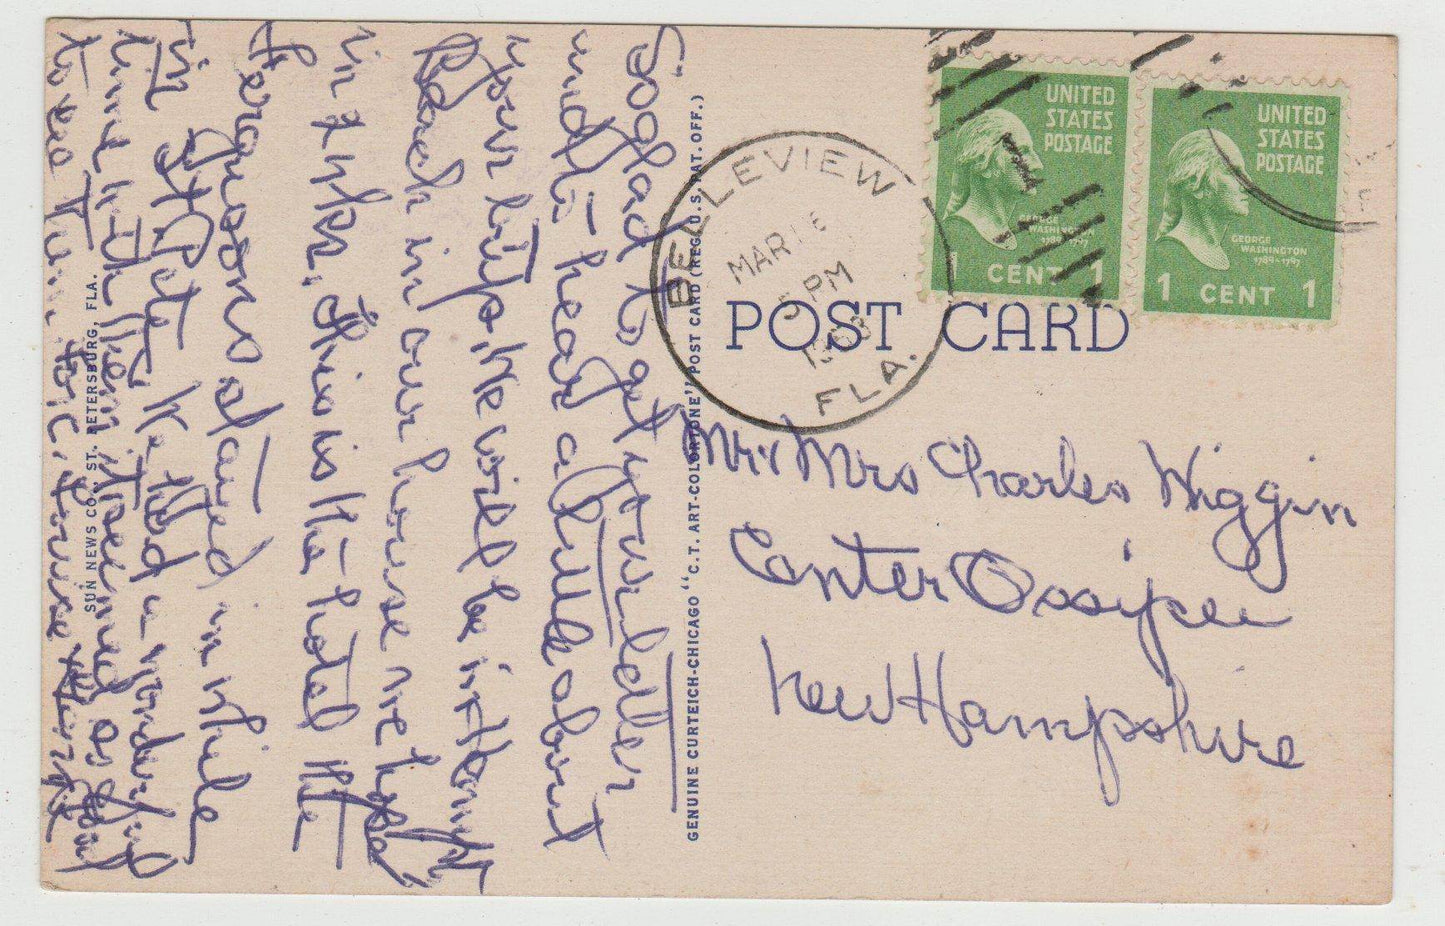 So glad to get your letter
and to hear all about
your trip. We will be in Hampton
Beach in our house we hope
in 7 wks. This is the hotel the
Fergusons stayed in while
in St Pete. We had a wonderful
time with them. It seemed as good
Love
SUN NEWS CO., ST. PETERSBURG, FLA.
GENUINE CURTEICH-CHICAGO "C.T. ART-COLORTONE" POST CARD (REG. U.S. PAT. OFF.)
BELLEVIEW
MAR 16
5 PM
FLA.
UNITED
STATES
POSTAGE
WASHINGTON
1789-1797
1 CENT 1
UNITED
STATES
POSTAGE
GEORGE
WASHINGTON
1789-1797
1 CENT 1
POST CARD
Mr & Mrs Charles Wiggin
Center Ossipee
New Hampshire